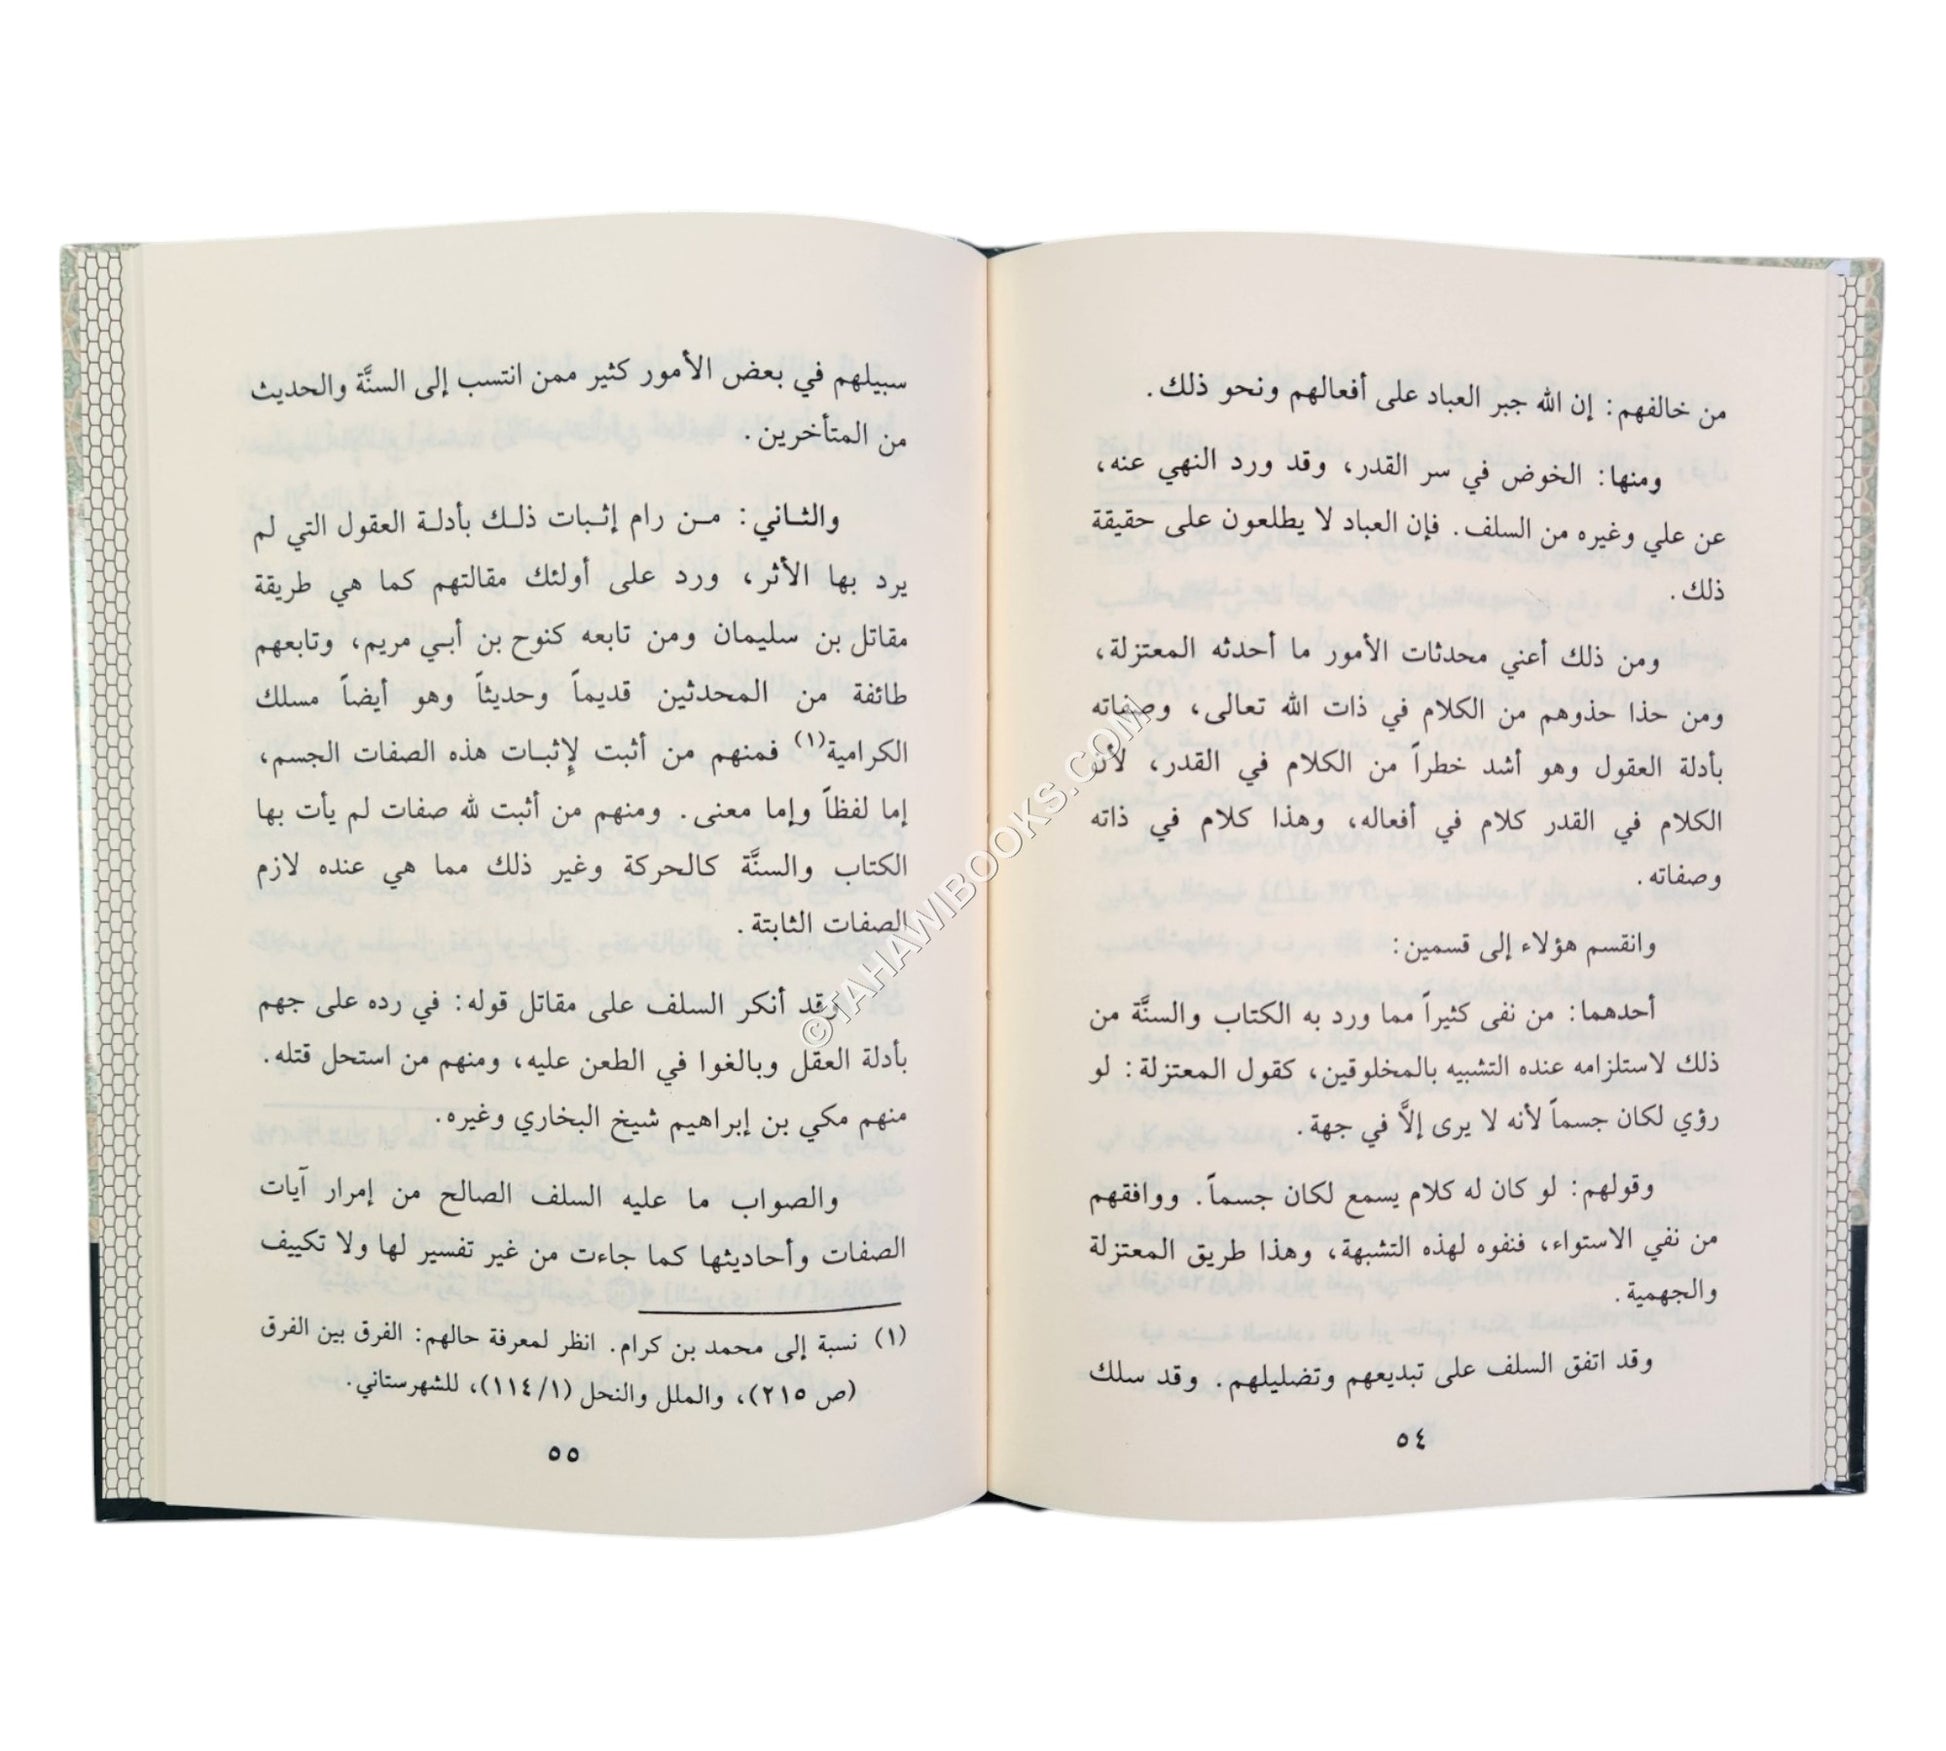 من خالفهم: إن الله جبر العباد على أفعالهم ونحو ذلك.
ومنها: الخوض في سر القدر، وقد ورد النهي عنه،
عن علي وغيره من السلف. فإن العباد لا يطلعون على حقيقة
ذلك.
ومن ذلك أعني محدثات الأمور ما أحدثه المعتزلة،
ومن حذا حذوهم من الكلام في ذات الله تعالى، وصفاته
بأدلة العقول وهو أشد خطراً من الكلام في القدر، لأن
الكلام في القدر كلام في أفعاله، وهذا كلام في ذاته
وصفاته.
وانقسم هؤلاء إلى قسمين:
أحدهما: من نفى كثيراً مما ورد به الكتاب والسنَّة من
ذلك لاستلزامه عنده التشبيه بالمخلوقين، كقول المعتزلة: لو
رؤي لكان جسماً لأنه لا يرى إلَّا في جهة.
وقولهم: لو كان له كلام يسمع لكان جسماً. ووافقهم
من نفى الاستواء، فنفوه لهذه التشبهة، وهذا طريق المعتزلة
والجهمية.
وقد اتفق السلف على تبديعهم وتضليلهم. وقد سلك
٥٤
سبيلهم في بعض الأمور كثير ممن انتسب إلى السنَّة والحديث
من المتأخرين.
والثاني: من رام إثبات ذلك بأدلة العقول التي لم
يرد بها الأثر، ورد على أولئك مقالتهم كما هي طريقة
مقاتل بن سليمان ومن تابعه كنوح بن أبي مريم، وتابعهم
طائفة من المحدثين قديماً وحديثاً وهو أيضاً مسلك
الكرامية(١) فمنهم من أثبت لإِثبات هذه الصفات الجسم،
إما لفظاً وإما معنى. ومنهم من أثبت لله صفات لم يأت بها
الكتاب والسنَّة كالحركة وغير ذلك مما هي عنده لازم
الصفات الثابتة.
وقد أنكر السلف على مقاتل قوله: في رده على جهم
بأدلة العقل وبالغوا في الطعن عليه، ومنهم من استحل قتله.
منهم مكي بن إبراهيم شيخ البخاري وغيره.
والصواب ما عليه السلف الصالح من إمرار آيات
الصفات وأحاديثها كما جاءت من غير تفسير لها ولا تكييف
(١) نسبة إلى محمد بن كرام. انظر لمعرفة حالهم: الفرق بين الفرق
(ص ٢١٥)، والملل والنحل (١/١١٤)، للشهرستاني.
٥٥
©TAHAWIBOOKS.COM